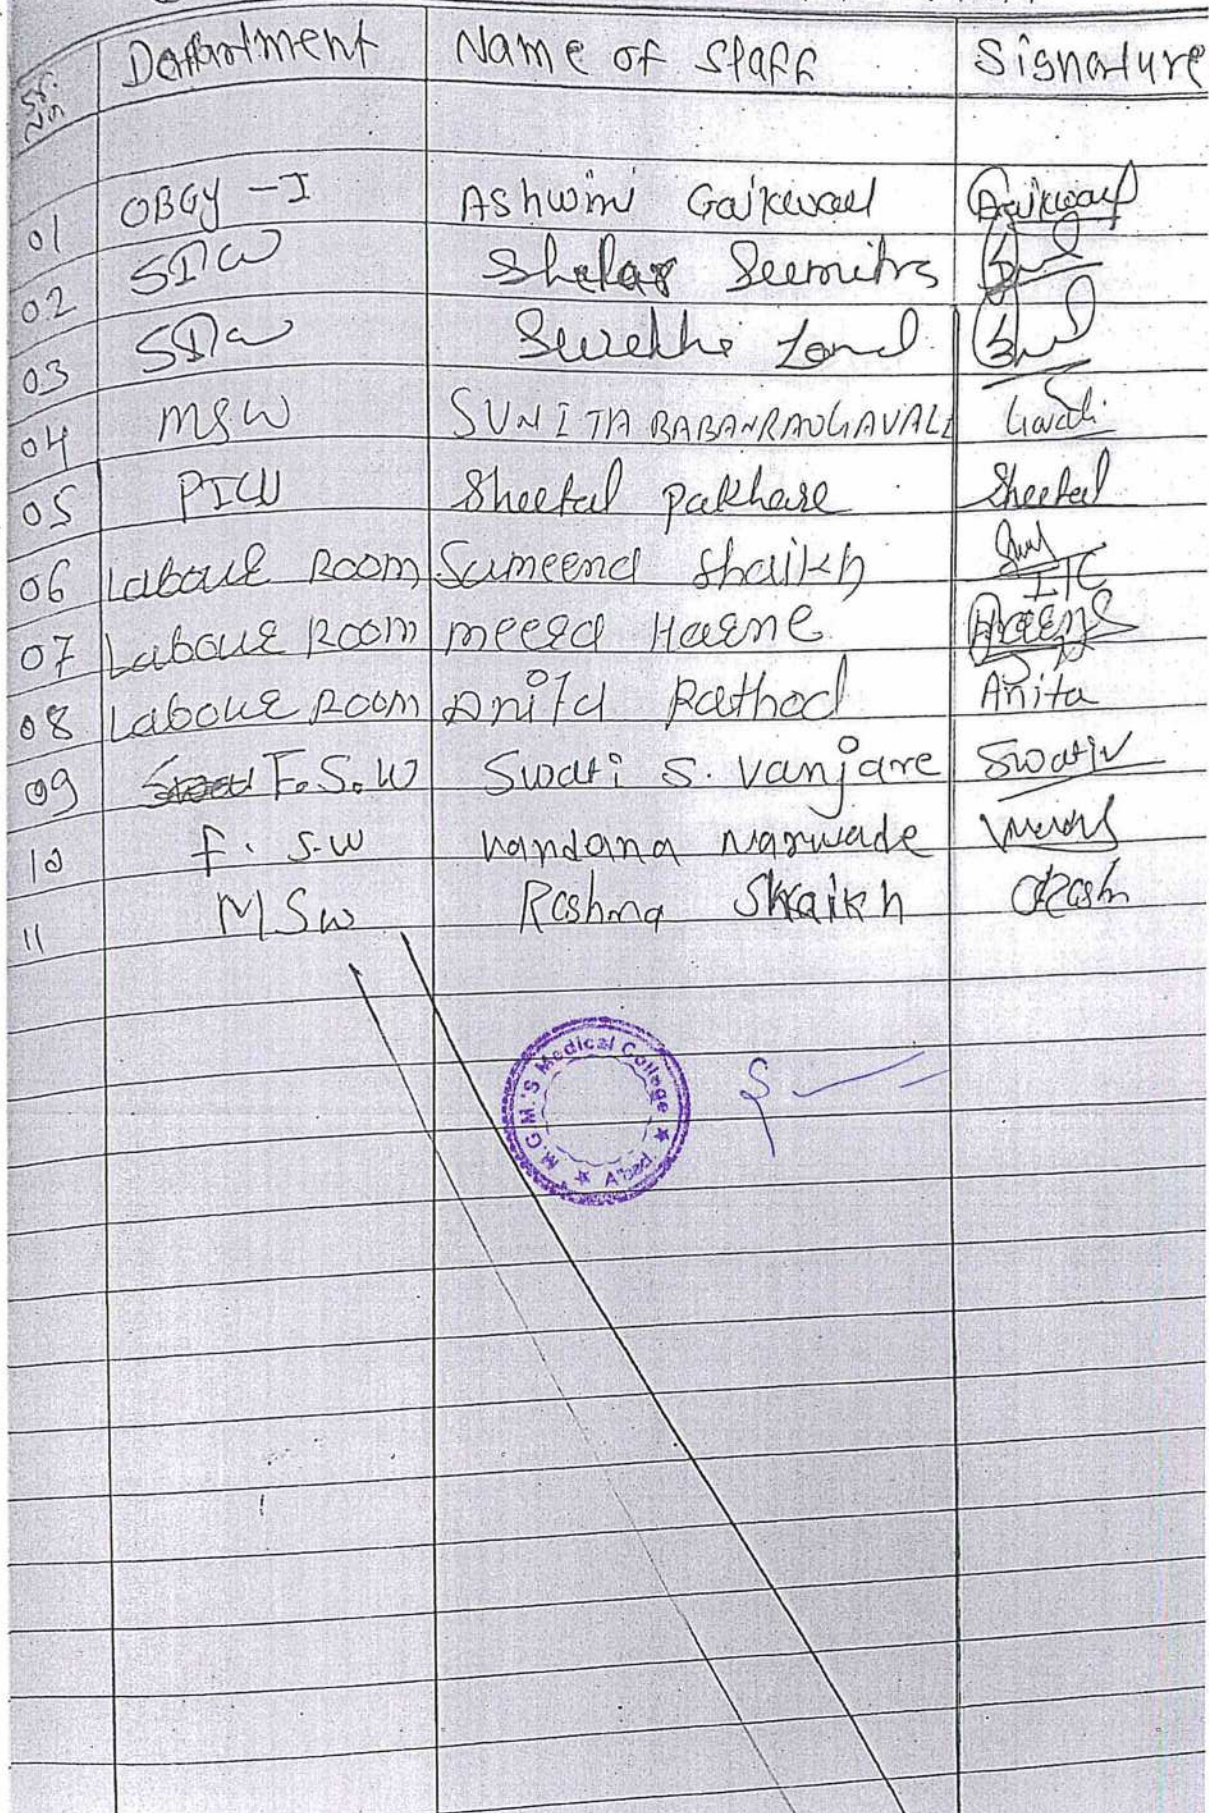 Sr. No Department Name of Staff Signature
01 OBGY - I Ashwini Gaikwad Gaikwad
02 SICW Shelar Sumitra
03 SICW Surekha Zond
04 MSW SUNITA BABANRAO GAVALI Gavali
05 PICU Sheetal Pakhare Sheetal
06 Laboue Room Sameena Shaikh
07 Laboue Room meera Harne
08 Laboue Room Anita Rathod Anita
09 F.S.W Swati S. Vanjare Swativ
10 F. S.W Vandana Narwade
11 MSW Rashma Shaikh
M.G.M.'S Medical College ★ A'bad ★